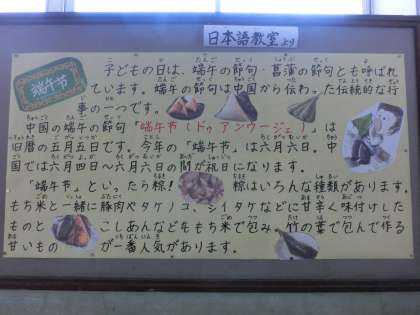 日本語教室より
端午节
子どもの日は、端午の節句・菖蒲の節句とも呼ばれ
ています。端午の節句は中国から伝わった伝統的な行
事の一つです。
中国の端午の節句「端午节(ドゥアンウージェ)」は
旧暦の五月五日です。今年の「端午节」は六月六日。中
国では六月四日〜六月六日の間が祝日になります。
「端午节」といったら粽! 粽はいろんな種類があります。
もち米と一緒に豚肉やタケノコ、シイタケなどに甘辛く味付けした
ものと こしあんなどをもち米で包み、竹の葉で包んで作る
甘いもの が一番人気があります。